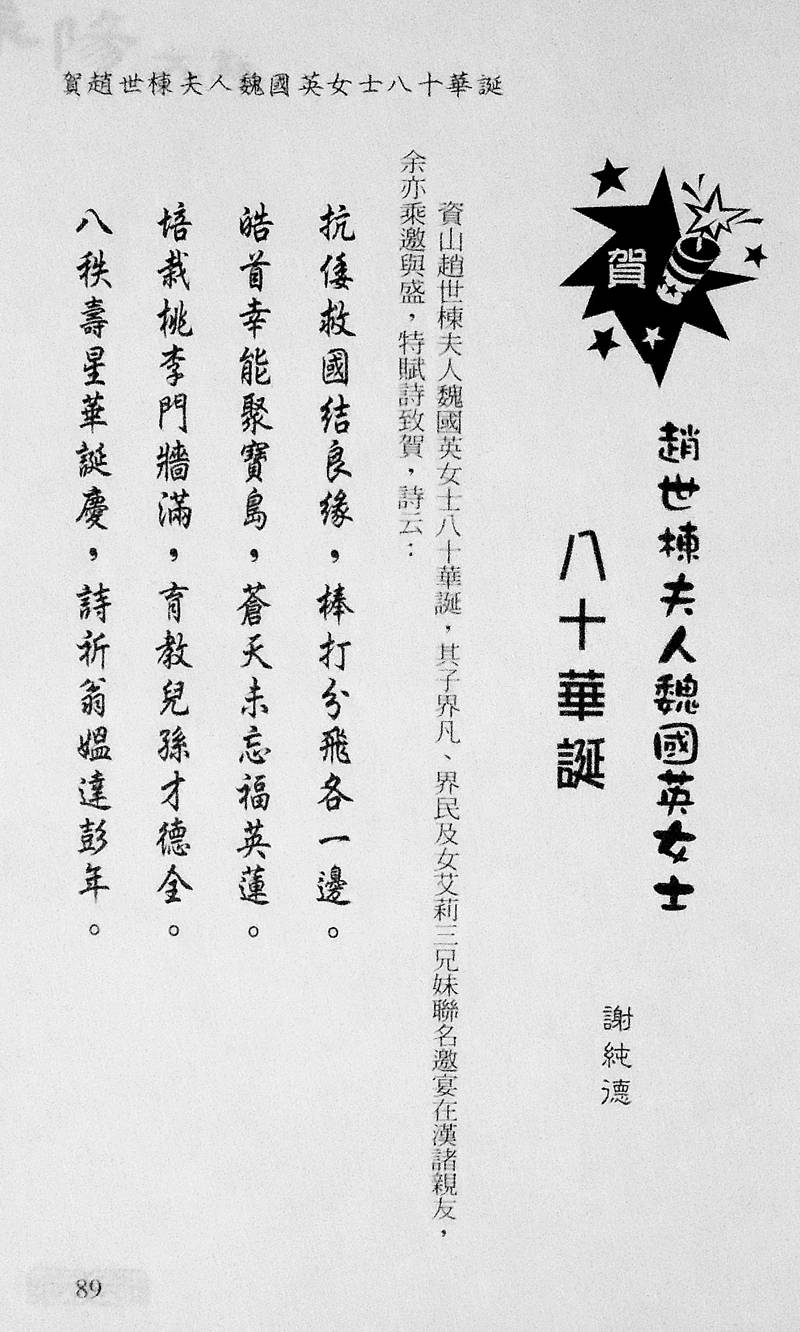 賀趙世棟夫人魏國英女士八十華誕
賀
趙世棟夫人魏國英女士
八十華誕
謝純德
資山趙世棟夫人魏國英女士八十華誕，其子界凡、界民及女艾莉三兄妹聯名邀宴在漢諸親友，
余亦乘邀與盛，特賦詩致賀，詩云：
抗倭救國結良緣，棒打分飛各一邊。
皓首幸能聚寶島，蒼天未忘福英蓮。
培栽桃李門牆滿，育教兒孫才德全。
八秩壽星華誕慶，詩祈翁媼達彭年。
89